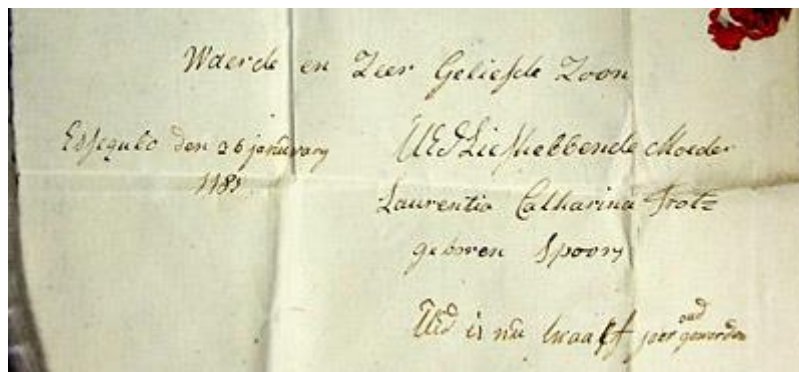 Waerde en Zeer Geliefde Zoon
Essequbo den 26 januwary UEd Liefhebbende Moeder
1781 Laurentia Catharina Trotz
geboren Spoors
UEd is nu twaalf jaer oud geworden